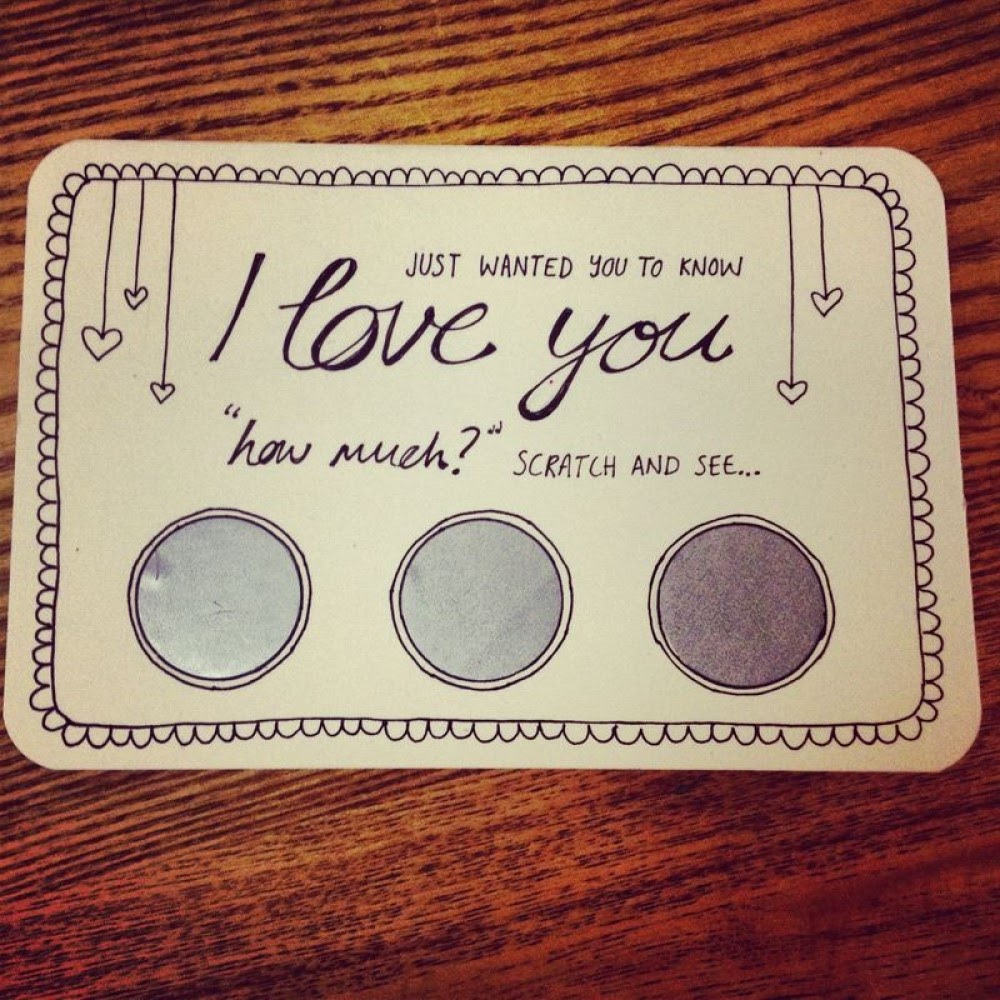 JUST WANTED YOU TO KNOW
I love you
"how much?" SCRATCH AND SEE...